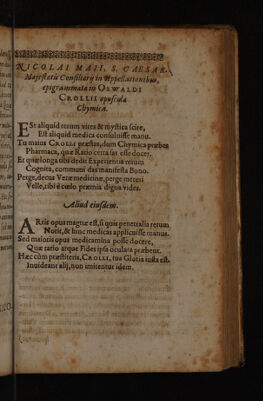 NICOLAI MAII, S. CAESAR.
Majestatis Consiliarij in Appellationibus,
epigrammata in OSWALDI
CROLLII opuscula
Chymica.
Est aliquid rerum vires & mystica scire,
Est aliquid medica consuluisse manu.
Tu manu CROLLI præstas, dum Chymica præbes
Pharmaca, quæ Ratio certa sat esse docet.
Et quæ longa tibi dedit Experientia rerum
Cognita, communi das manifesta Bono.
Perge, decus Veræ medicinæ, perge mereri
Velle, tibi è cœlo præmia digna vides.
Aliud ejusdem.
ARtis opus magnæ est, si quis penetralia rerum
Norit, & hinc medicas applicuisse manus.
Sed maioris opus medicamina posse docere,
Quæ ratio atque Fides ipsa oculata probent.
Hæc cùm præstiteris, CROLLI, tua Gloria iusta est.
Invideant alij, non imitentur idem.